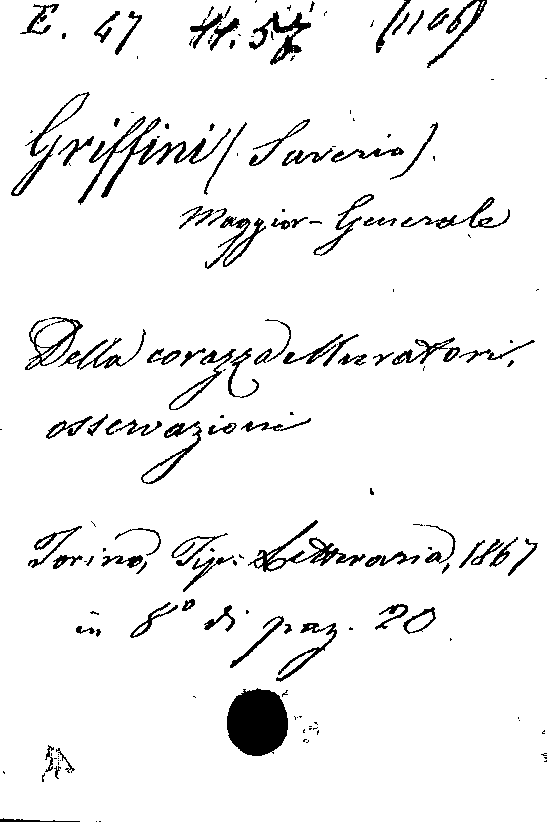 E. 47 H. 57 (1106)
Griffini (Saverio).
Maggior-Generale
Della corazza Muratori,
osservazioni
Torino, Tip: Letteraria, 1867
in 8° di pag. 20